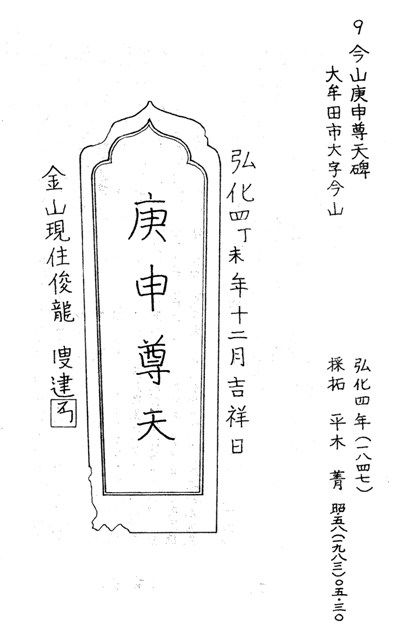 9 今山庚申尊天碑
大牟田市大字今山
弘化四年(一八四七)
採拓 平木 菁 昭.五八(一九八三)〇五.三〇
弘化四丁未年十二月吉祥日
庚申尊天
金山現住俊龍 叟建